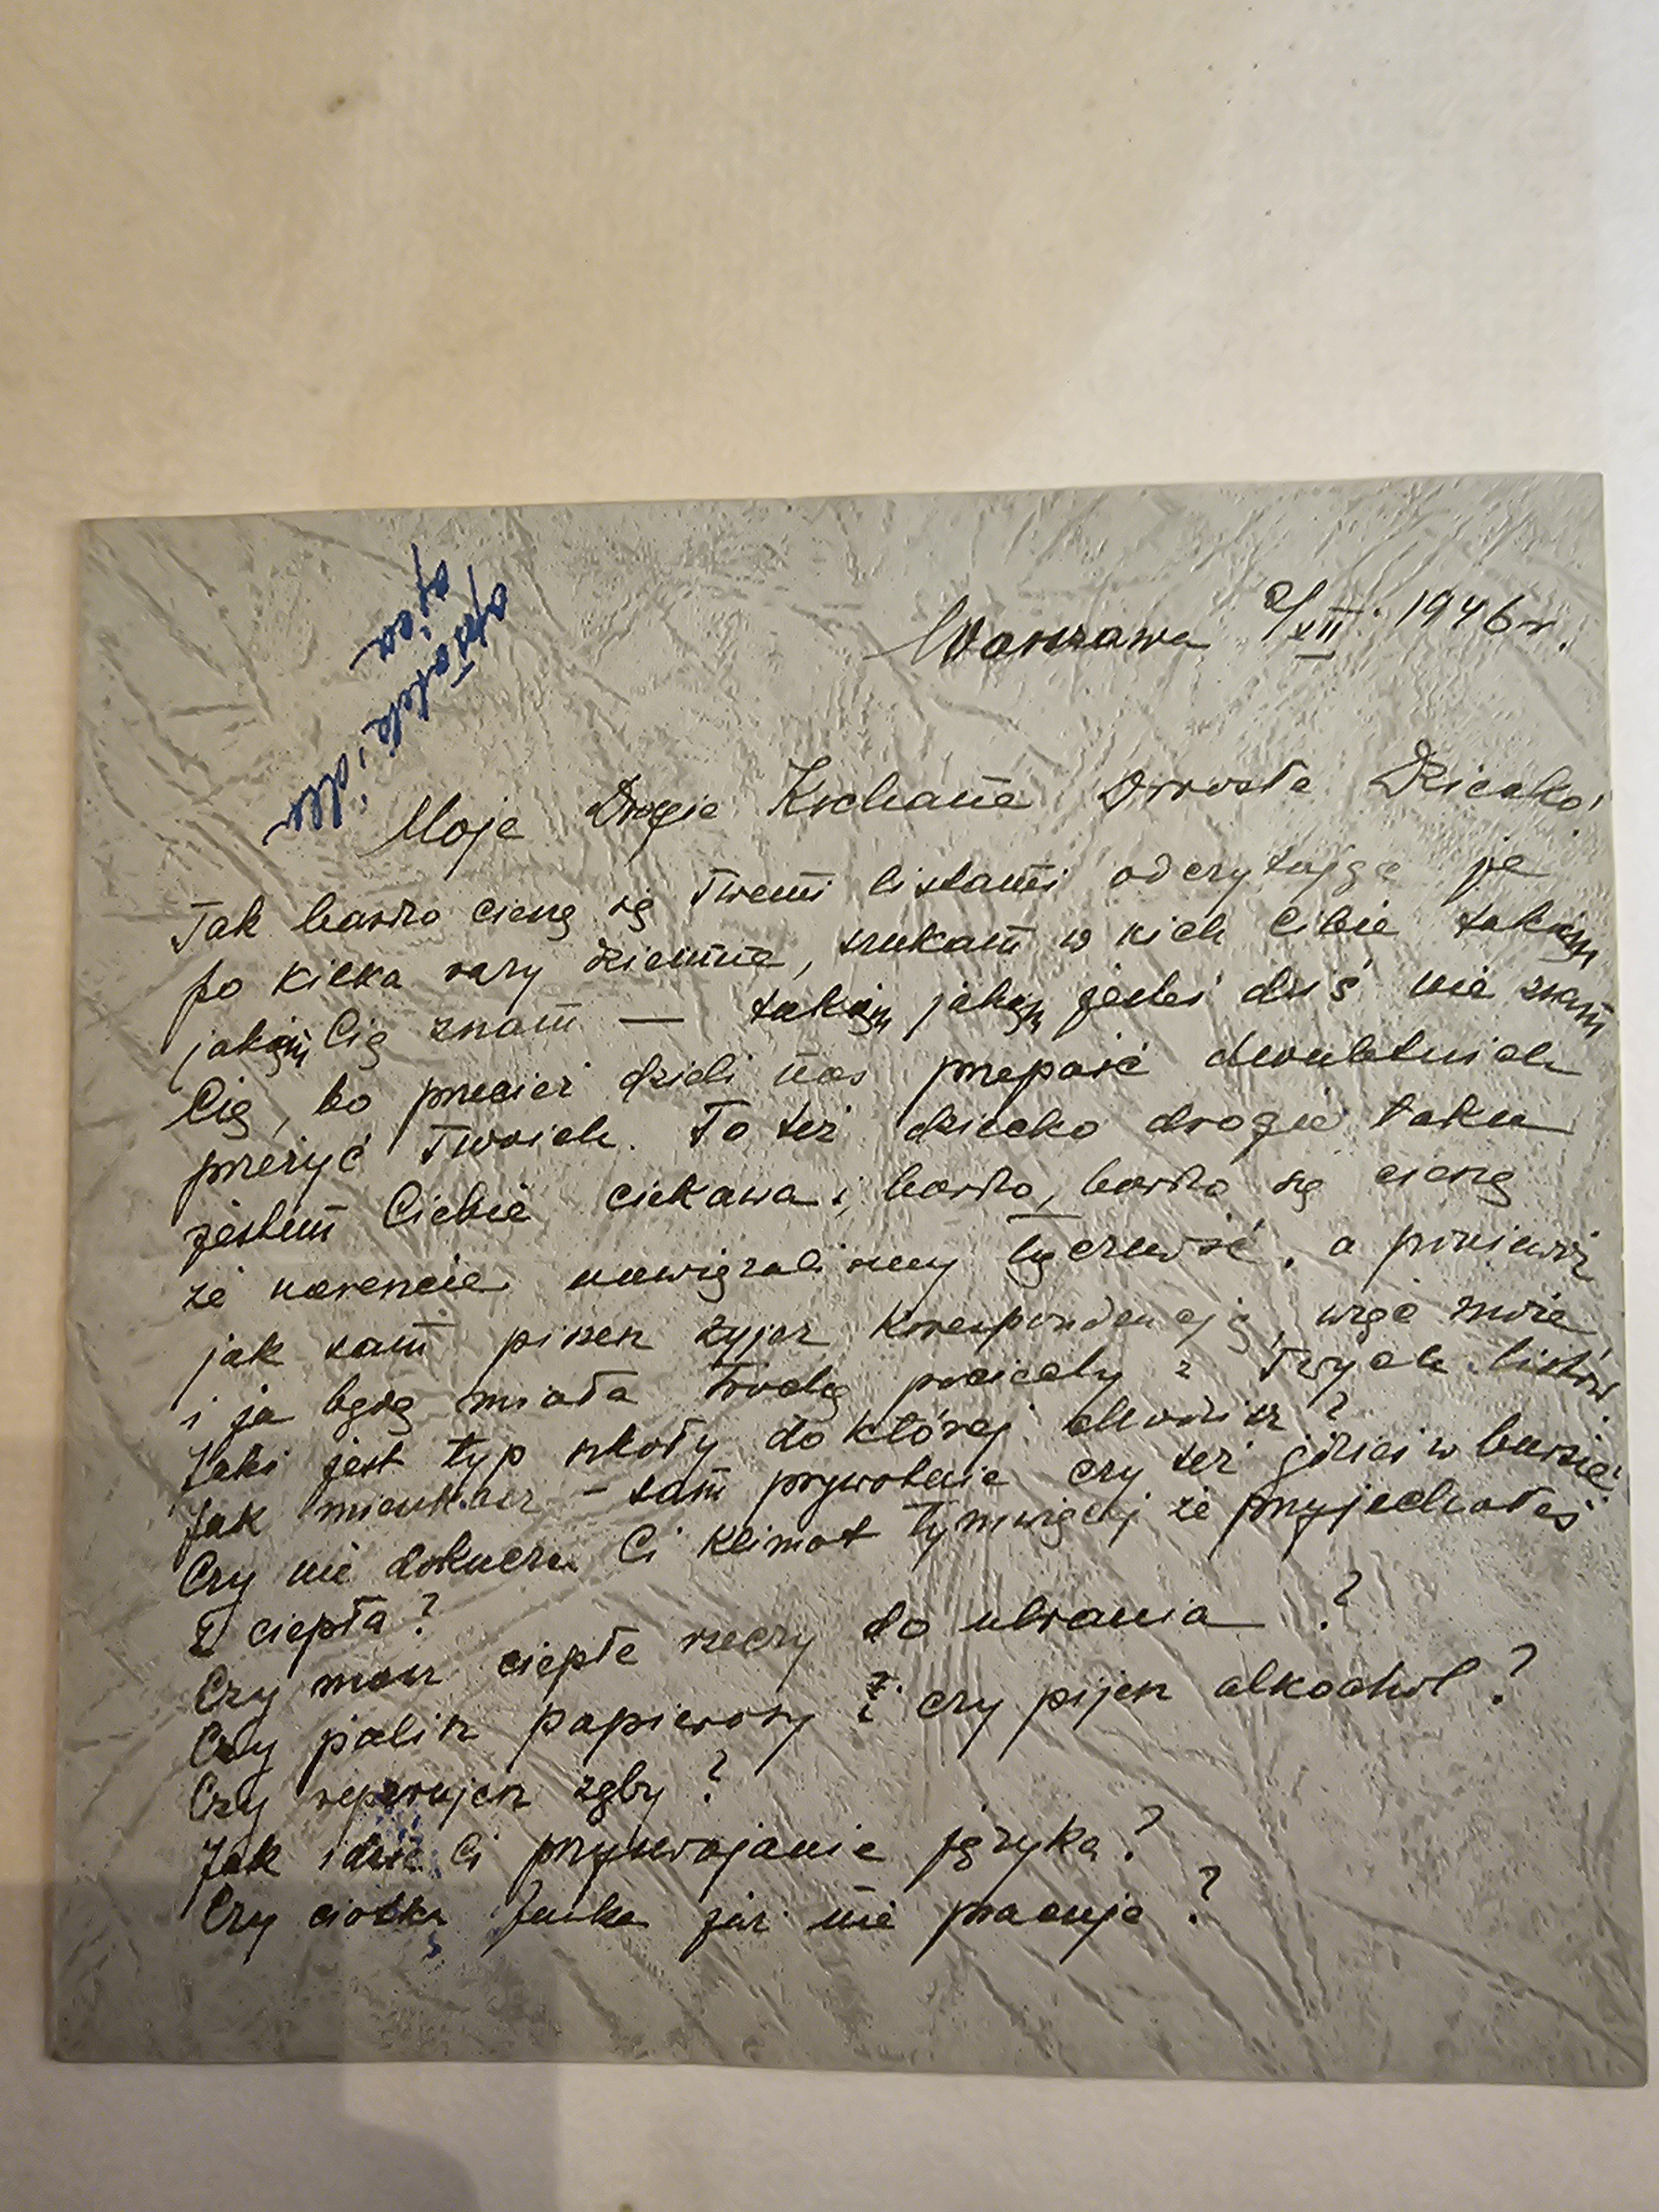 Warszawa 2/XII. 1946 r.
Moje Drogie Kochane Dorosłe Dziecko!
Tak bardzo cieszę się Twemi listami odczytując je
po kilka razy dziennie, szukam w nich Cibie takiego
jakiego Cię znam — takiego jakiego jeszcze dziś nie znam
Cię, bo przecież dzieli nas przepaść dwuletnich
przeżyć Twoich. To też dziecko drogie taka
jestem Ciebie ciekawa i, bardzo, bardzo się cieszę
że nareszcie nawiązaliśmy łączność, a ponieważ
jak sam piszesz żyjesz korespondencją, więc może
i ja będę miała trochę pociechy z Twych listów
Jaki jest typ szkoły do której chodzisz?
Jak mieszkasz – sam prywatnie czy też gdzieś w bursie?
Czy nie dokucza Ci klimat tymwięcej że przyjechałeś
z ciepła?
Czy masz ciepłe rzeczy do ubrania ?
Czy palisz papierosy i czy pijesz alkochol?
Czy reperujesz zęby?
Jak idzie Ci przyswajanie języka?
Czy ciotka Janka już nie pracuje?